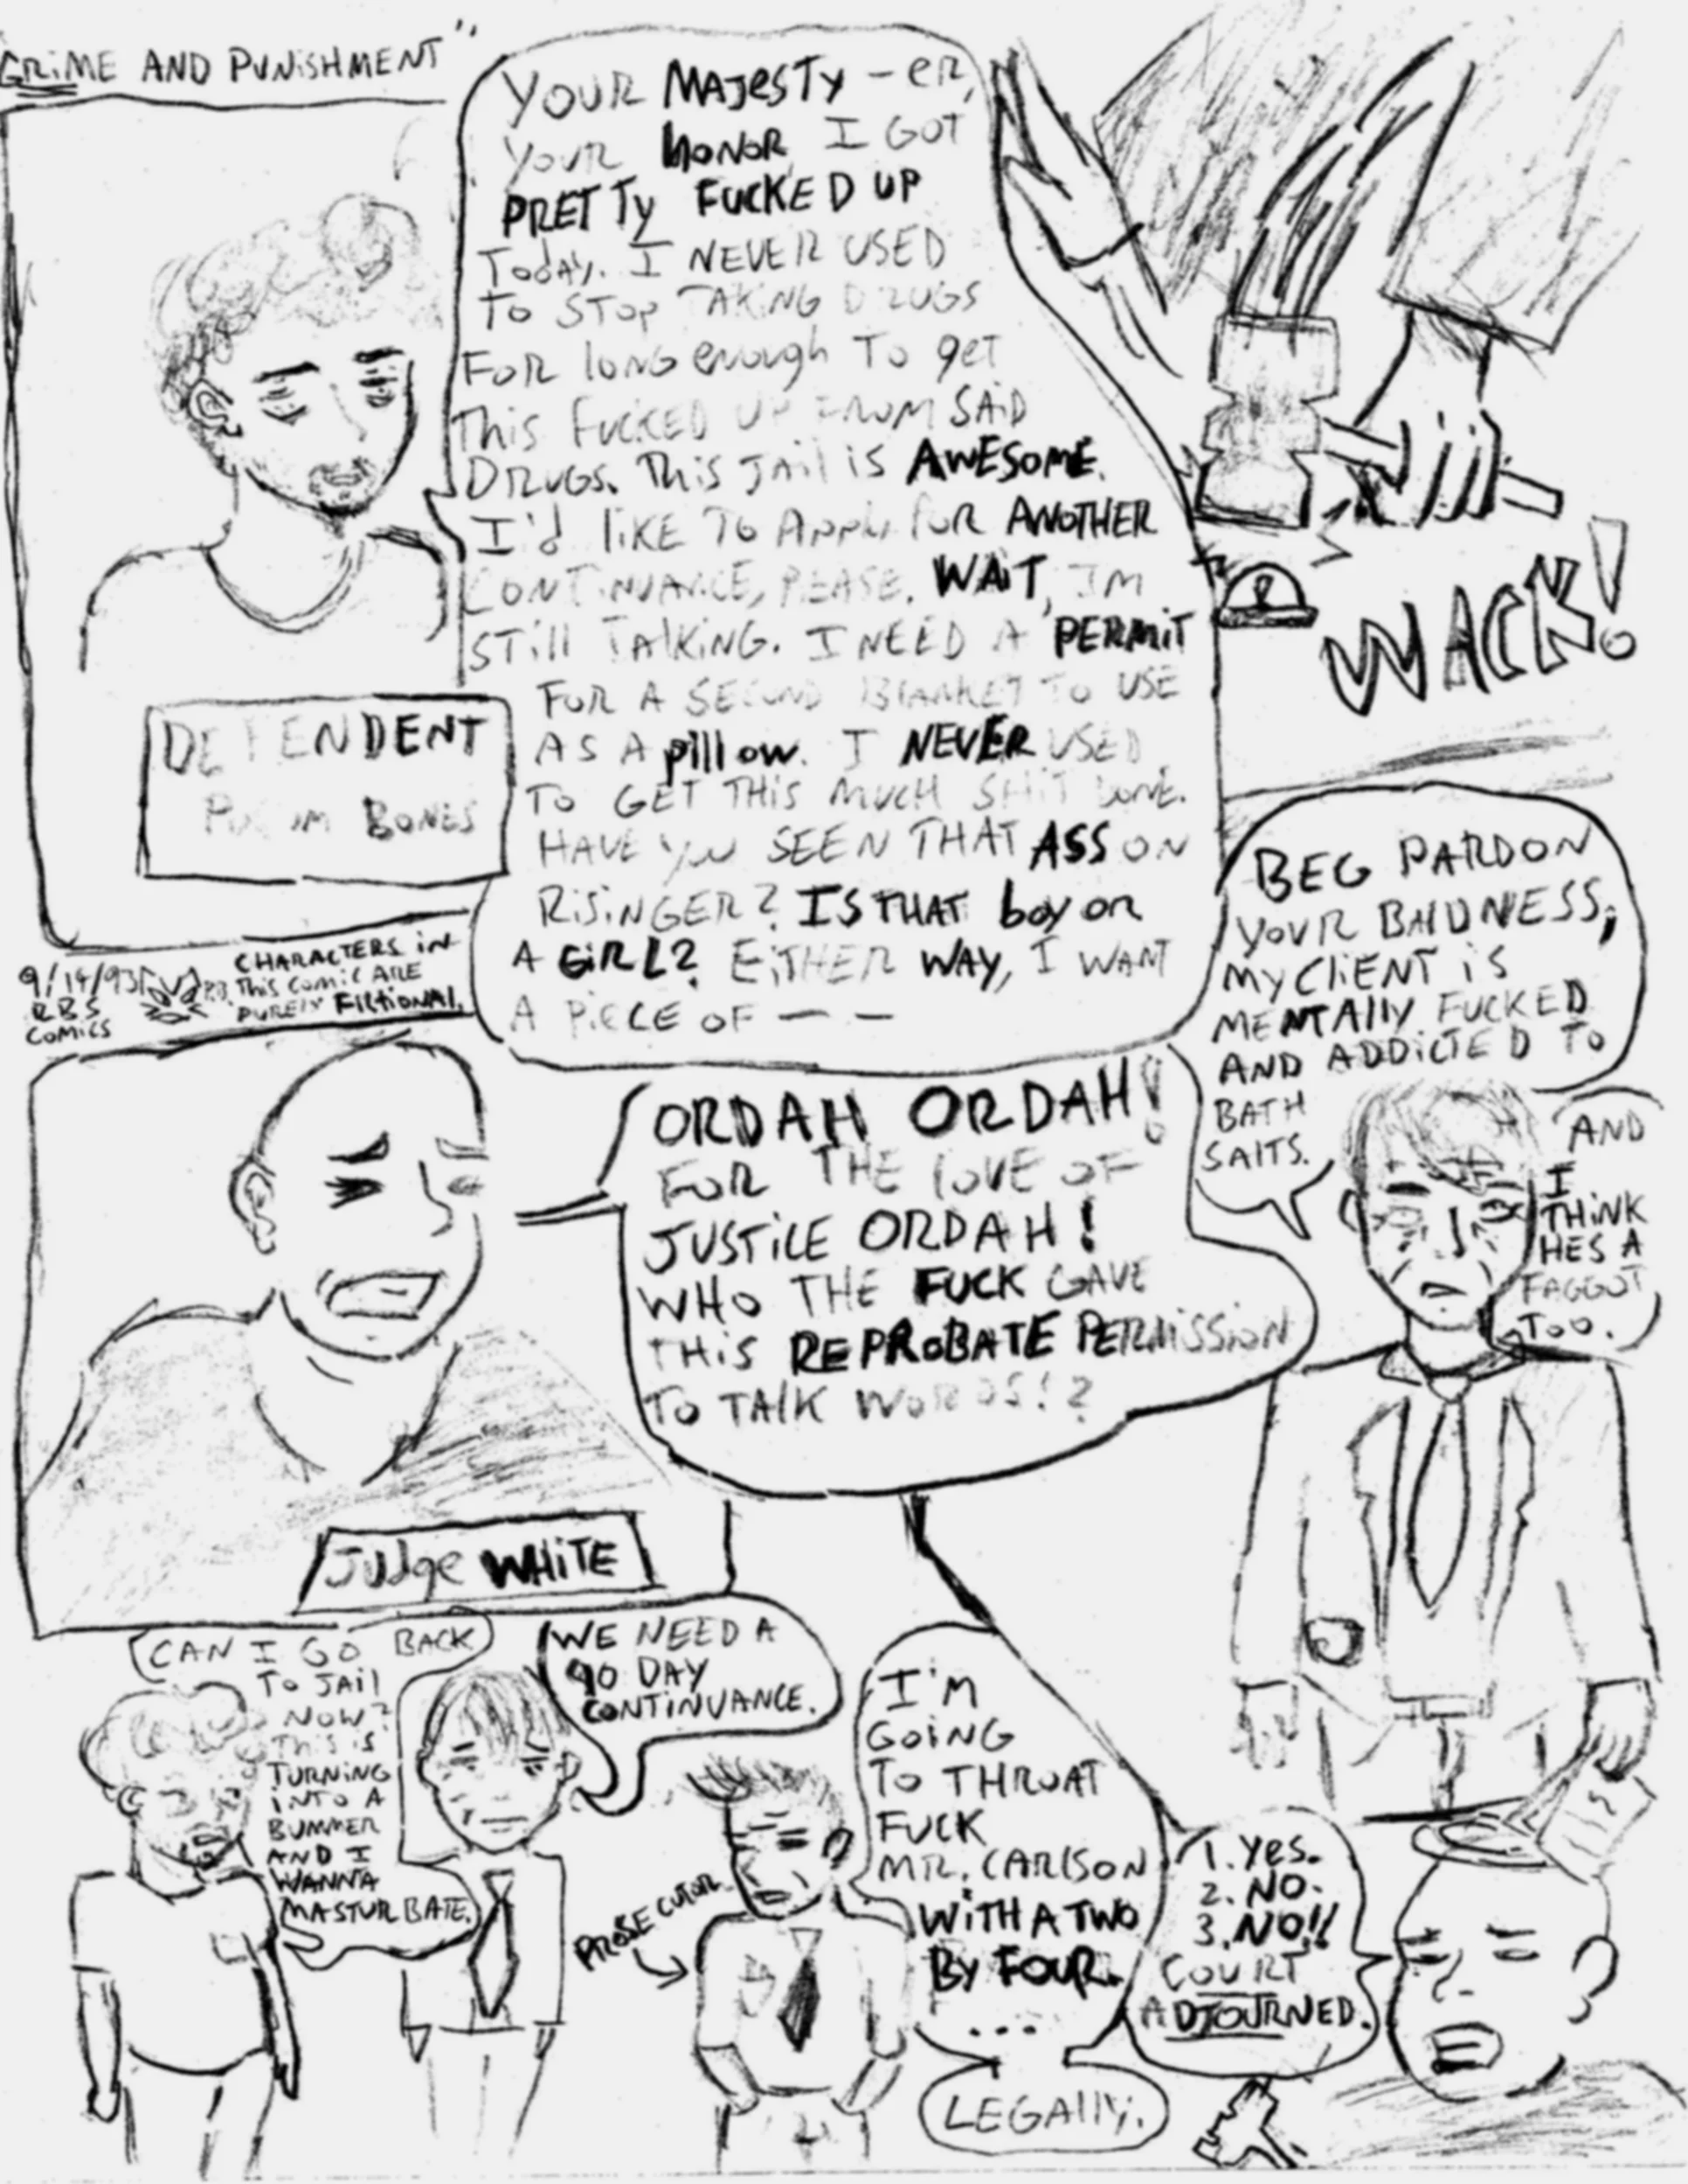 "GRIME AND PUNISHMENT"
YOUR MAJESTY - ER,
YOUR HONOR, I GOT
PRETTY FUCKED UP
TODAY. I NEVER USED
TO STOP TAKING DRUGS
FOR LONG ENOUGH TO GET
THIS FUCKED UP FROM SAID
DRUGS. THIS JAIL IS AWESOME.
I'D LIKE TO APPLY FOR ANOTHER
CONTINUANCE, PLEASE. WAIT, IM
STILL TALKING. I NEED A PERMIT
FOR A SECOND BLANKET TO USE
AS A PILLOW. I NEVER USED
TO GET THIS MUCH SHIT DONE.
HAVE YOU SEEN THAT ASS ON
RISINGER? IS THAT BOY OR
A GIRL? EITHER WAY, I WANT
A PIECE OF - -
DEFENDENT
BONES
9/14/93
RBS
COMICS
CHARACTERS IN
THIS COMIC ARE
PURELY FICTIONAL.
WACK!
ORDAH ORDAH!
FOR THE LOVE OF
JUSTICE ORDAH!
WHO THE FUCK GAVE
THIS REPROBATE PERMISSION
TO TALK WORDS!?
JUDGE WHITE
BEG PARDON
YOUR BALDNESS,
MY CLIENT IS
MENTALLY FUCKED
AND ADDICTED TO
BATH
SALTS.
AND
I
THINK
HES A
FAGGOT
TOO.
CAN I GO BACK
TO JAIL
NOW?
THIS IS
TURNING
INTO A
BUMMER
AND I
WANNA
MASTURBATE.
WE NEED A
90 DAY
CONTINUANCE.
PROSECUTOR
I'M
GOING
TO THROAT
FUCK
MR. CARLSON
WITH A TWO
BY FOUR.
...
LEGALLY.
1. YES.
2. NO.
3. NO!!
COURT
ADJOURNED.